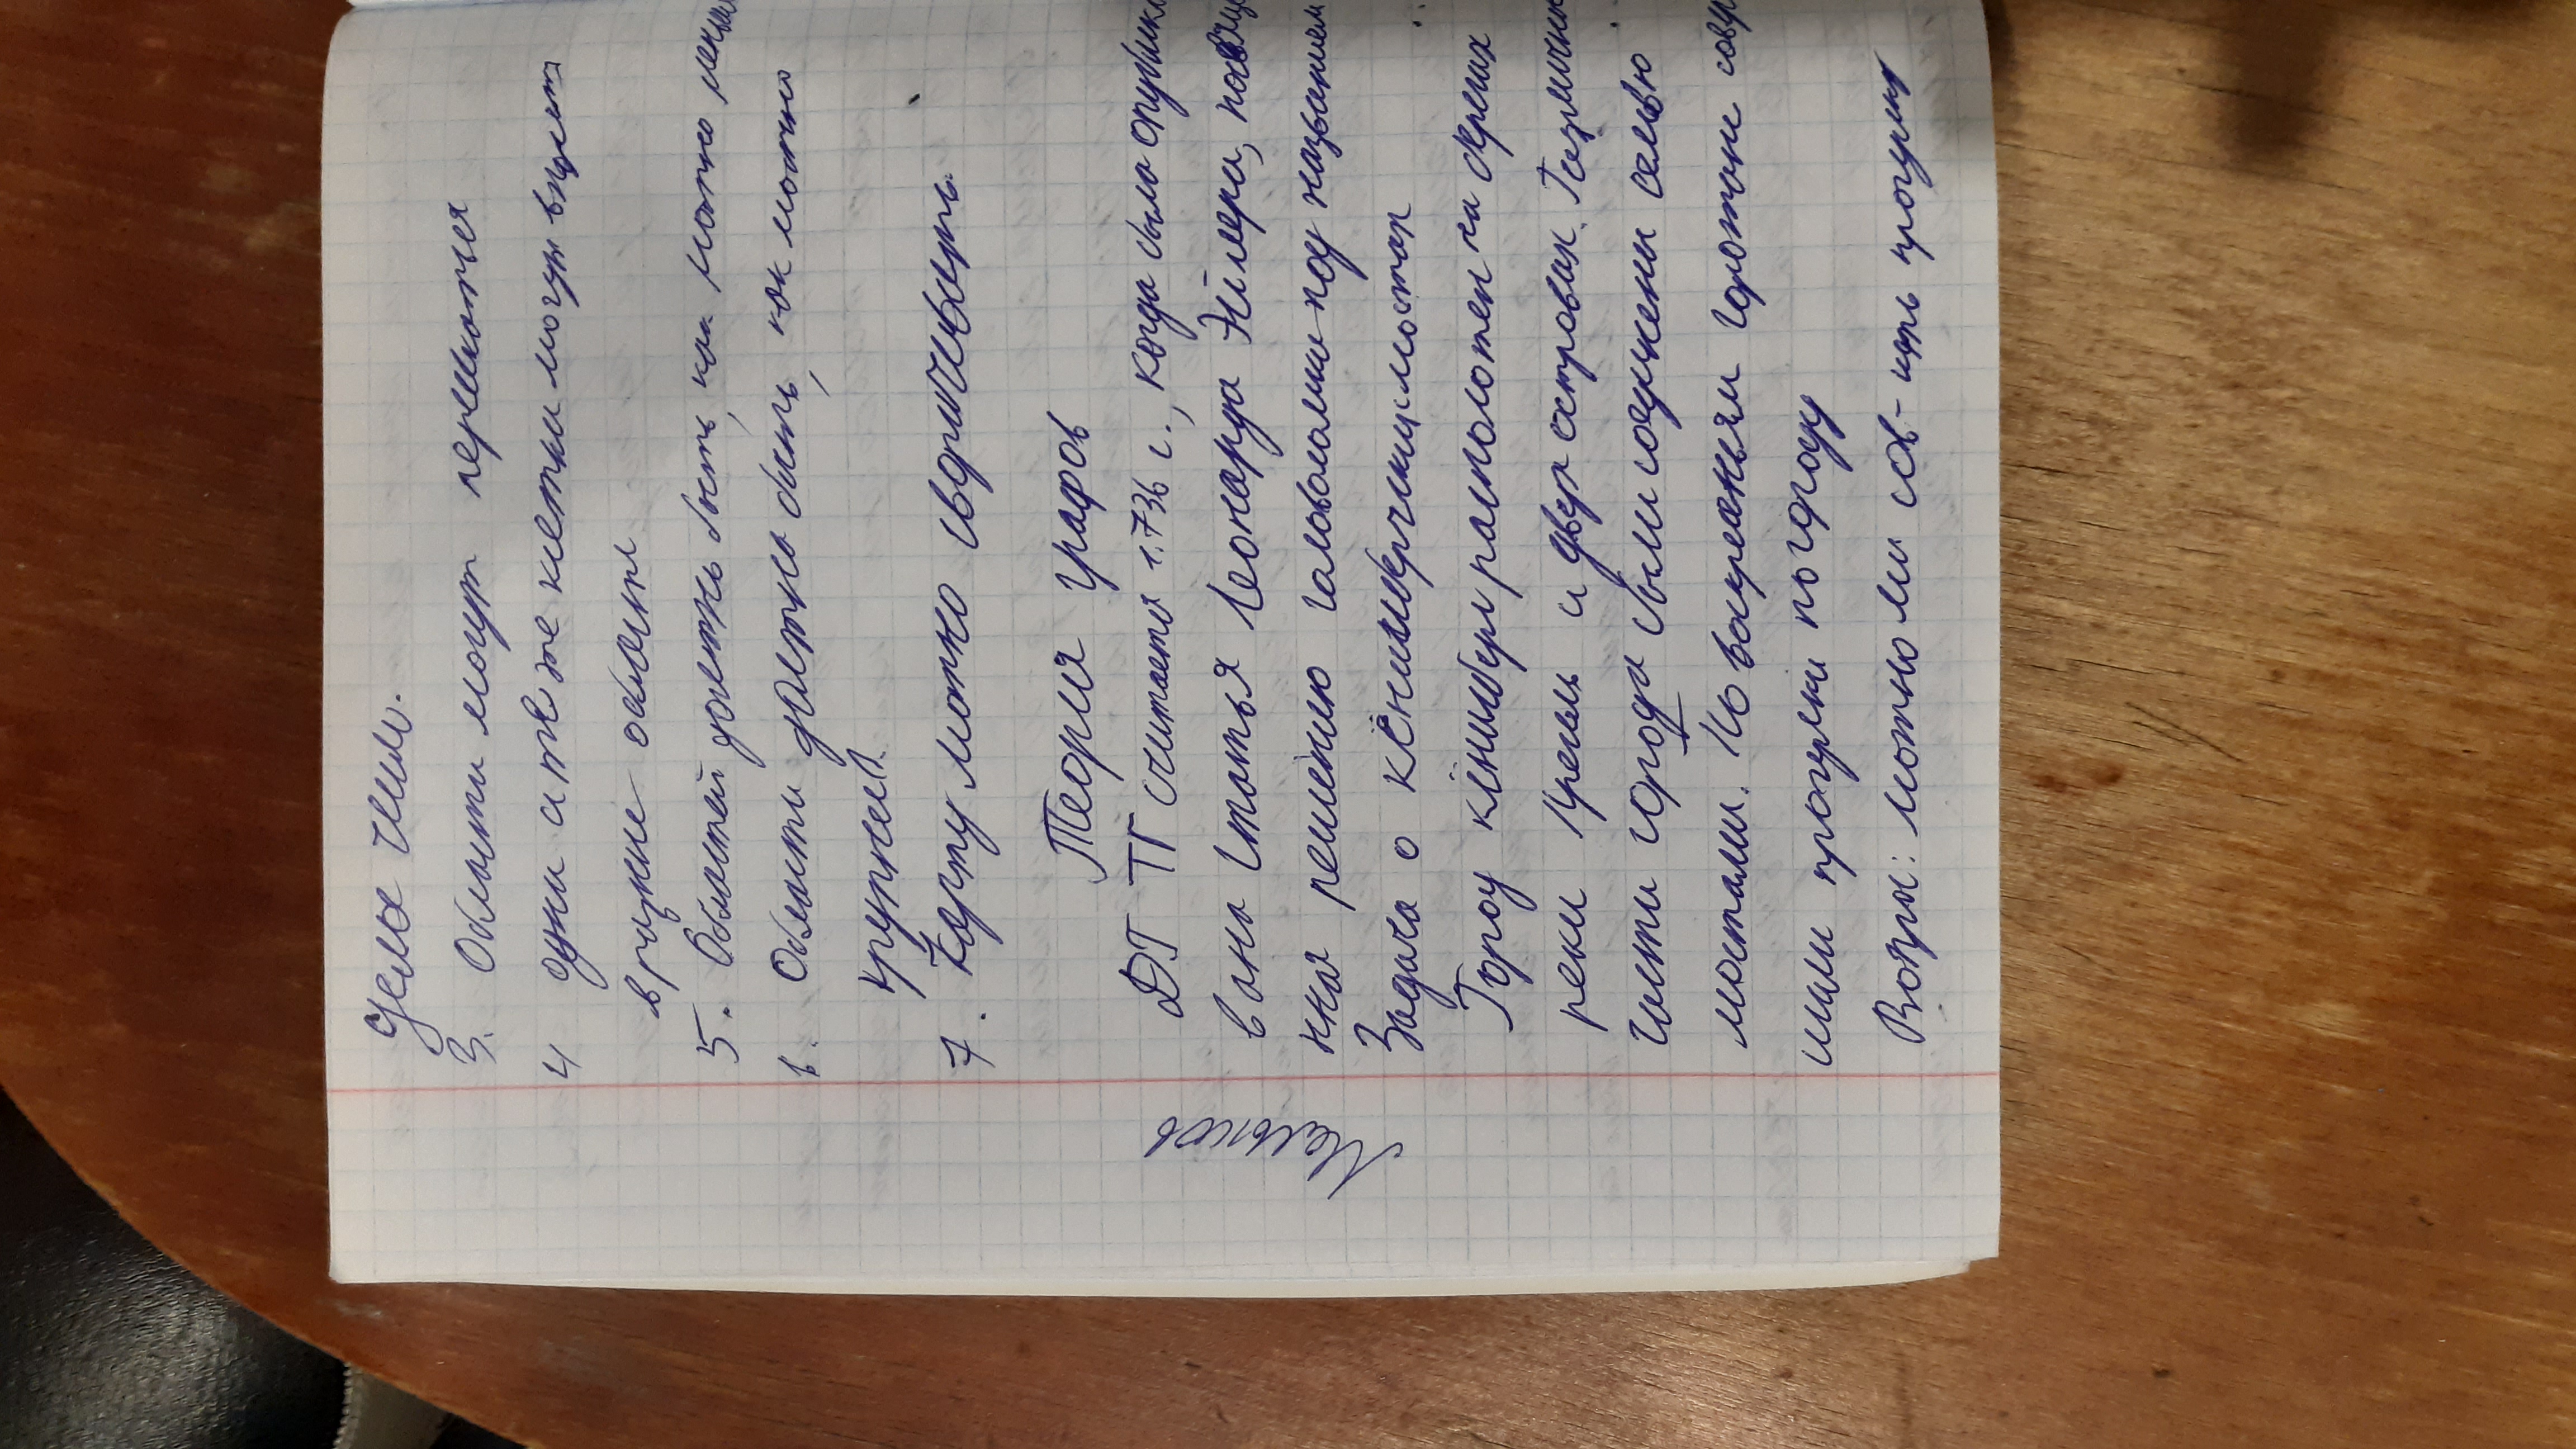 целое число.
3. Области могут пересекаться
4 одни и те же клетки могут входить
в разные области
5. Областей должно быть, как можно меньше
6. Области должно быть, как можно
крупнее.
7. Карту можно сворачивать.
Теория графов
ДГ ТГ считается 1.736 г., когда была опублико
вана статья Леонарда Эйлера, посвяще
нная решению головоломки под названием
Задача о кёнигсбергских мостах
Город кёнигсберг расположен на берегах
реки Прегель и двух островах. Различные
части города были соединены семью
мостами. По воскресеньям горожане совер
шали прогулки по городу
Вопрос: можно ли сов-шать прогулку
Мельников